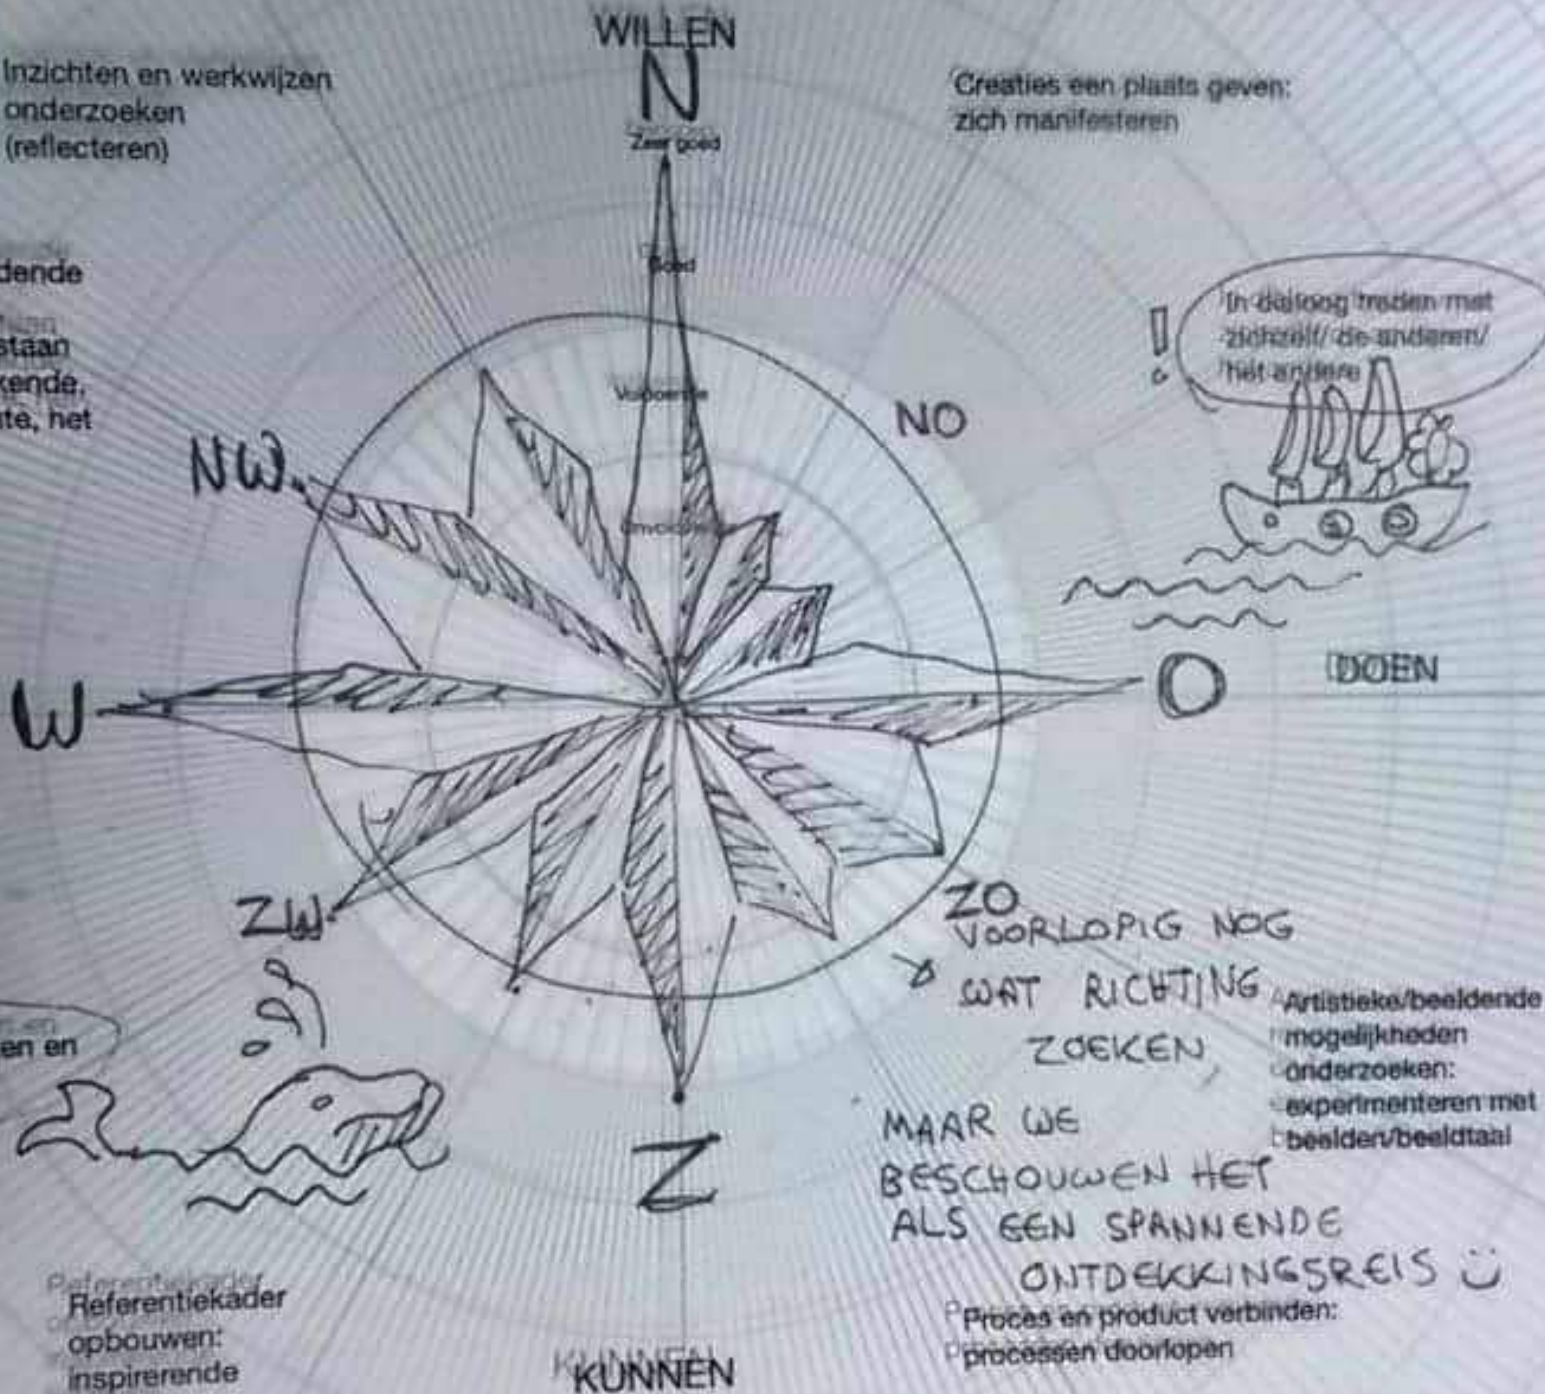 WILLEN
N
Zeer goed
Goed
Voldoende
Inzichten en werkwijzen
onderzoeken
(reflecteren)
Creaties een plaats geven:
zich manifesteren
dende
staan
kende,
te, het
In dialoog treden met
zichzelf/ de anderen/
het andere
!
NO
NW
W
O
DOEN
ZW
ZO
VOORLOPIG NOG
WAT RICHTING
ZOEKEN
MAAR WE
BESCHOUWEN HET
ALS EEN SPANNENDE
ONTDEKKINGSREIS
Artistieke/beeldende
mogelijkheden
onderzoeken:
experimenteren met
beelden/beeldtaal
en en
Z
Referentiekader
opbouwen:
inspirerende
KUNNEN
Proces en product verbinden:
processen doorlopen